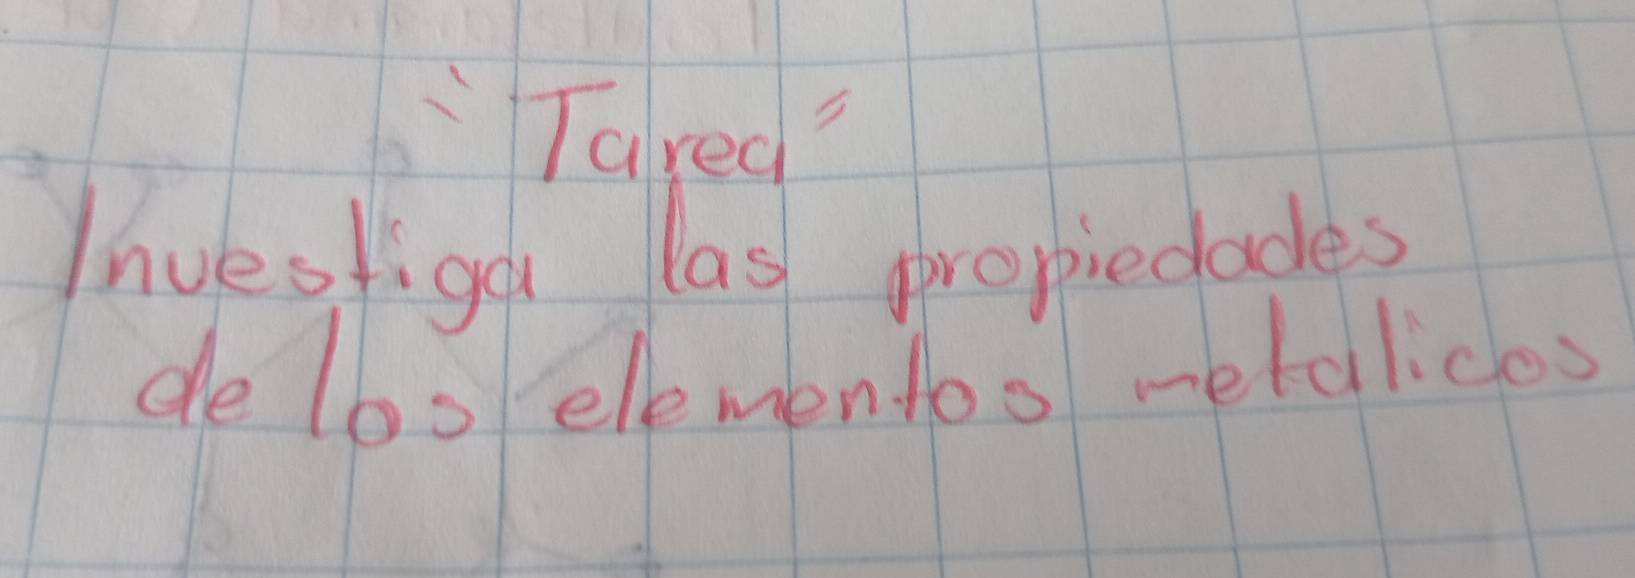 "Tarea"
Investiga las propiedades
de los elementos metalicos